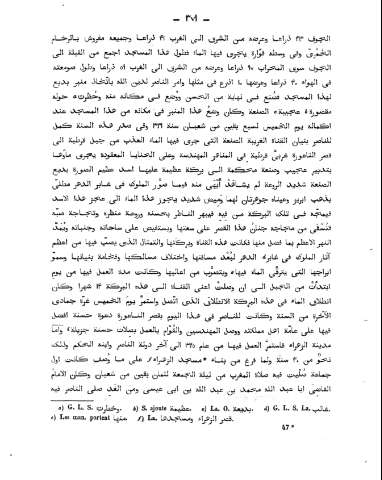 — ٣٧١ —
الجوف ٣٣ ذراعا وعرضه من الشرق الى الغرب ٤٣ ذراعا وجميعه مفروش بالرخام
الخمرى وفى وسطه فوارة يجرى فيها الماء فطول هذا المسجد اجمع من القبلة الى
الجوف سوى المحراب ٩٧ ذراعا وعرضه من الشرق الى الغرب ٥٩ ذراعا وطول صومعته
فى الهواء ٤٠ ذراعا وعرضها ١٠ اذرع فى مثلها وامر الناصر لدين الله باتخاذ منبر بديع
لهذا المسجد فصنع فى نهاية من الحسن ووضع فى مكانه منه وحظرت a) حوله
مقصورة عجيبة b) الصنعة وكان وضع هذا المنبر فى مكانه من هذا المسجد عند
اكماله يوم الخميس لسبع بقين من شعبان سنة ٣٢٩ وفى صدر هذه السنة كمل
للناصر بنيان القناة الغريبة الصنعة التى جرى فيها الماء العذب من جبل قرطبة الى
قصر الناعورة غربى قرطبة فى المناهر المهندسة وعلى الحنايا المعقودة يجرى ماؤها
بتدبير عجيب وصنعة محكمة الى بركة عظيمة عليها اسد عظيم الصورة بديع
الصنعة شديد الروعة لم يشاهد ابهى منه فيما صور الملوك فى غابر الدهر مطلى
بذهب ابريز وعيناه جوهرتان لهما وميض شديد يجوز هذا الماء الى عجز هذا الاسد
فيمجه فى تلك البركة من فيه فيبهر الناظر بحسنه وروعة منظره وثجاجة صبه
فتسقى من مجاجه جنان هذا القصر على سعتها ويستفيض على ساحاته وجنباته ويمد
النهر الاعظم بما فضل منه فكانت هذه القناة وبركتها والتمثال الذى يصب فيها من اعظم
آثار الملوك فى غابر الدهر لبعد مسافتها واختلاف مسالكها وفخامة بنيانها وسمو
ابراجها التى يترقى الماء فيها ويتصوب من اعاليها وكانت مدة العمل فيها من يوم
ابتدأت من الجبل الى ان وصلت اعنى القناة الى هذه البركة ١٤ شهرا وكان
انطلاق الماء فى هذه البركة الانطلاق الذى اتصل واستمر يوم الخميس غرة جمادى
الآخرة من السنة وكانت للناصر فى هذا اليوم بقصر الناعورة دعوة حسنة افضل
فيها على عامة اهل مملكته ووصل المهندسين والقوام بالعمل بصلات حسنة جزيلة وأما
مدينة الزهراء فاستمر العمل فيها من عام ٣٢٥ الى آخر دولة الناصر وابنه الحكم وذلك
نحو من ٤٠ سنة ولما فرغ من بناء * مسجد الزهراء f) على ما وصف كانت اول
جماعة صليت فيه صلاة المغرب من ليلة الجمعة لثمان بقين من شعبان وكان الامام
القاضى ابا عبد الله محمد بن عبد الله بن ابى عيسى ومن الغد صلى الناصر فيه
a) G. L. S. وخطرت. b) S. ajoute عظيمة. c) La. O. بديعة. d) G. L. S. La. غالب.
e) Les man. portent عنها. f) La. قصر الزهراء ومسجدها.
47 *